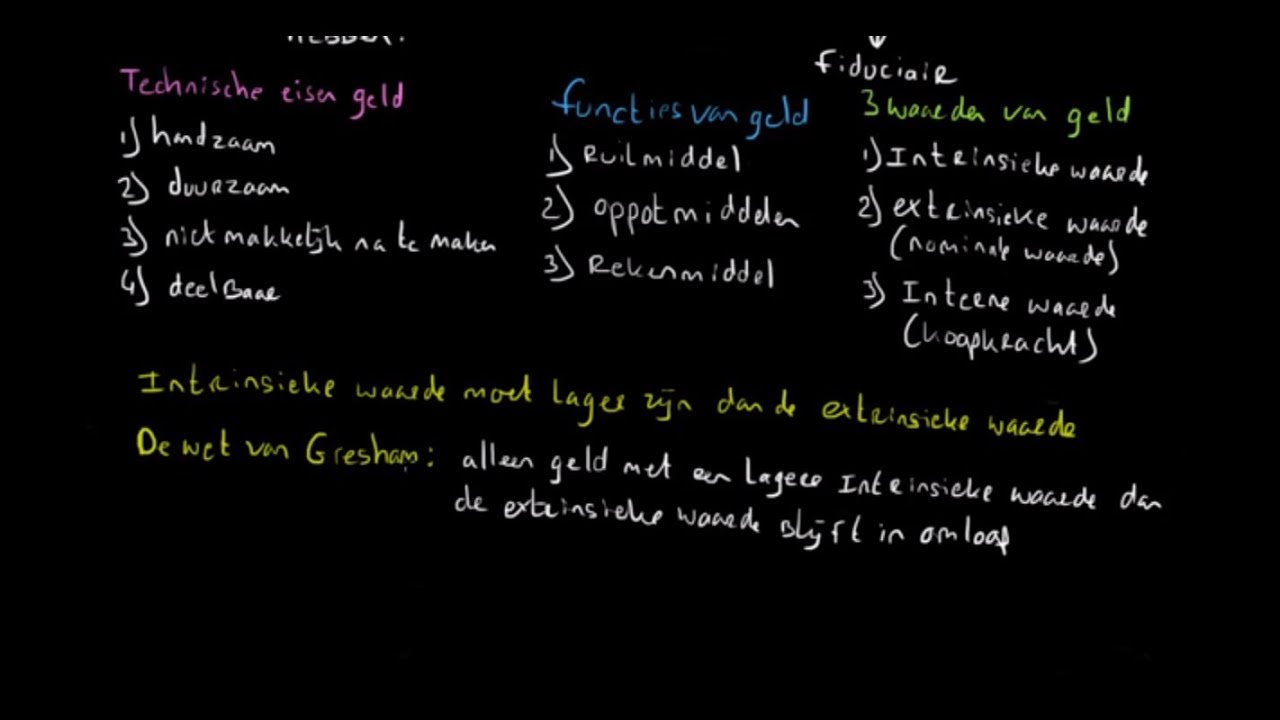 fiduciair
Technische eisen geld
1) handzaam
2) duurzaam
3) niet makkelijk na te maken
4) deelbaar
functies van geld
1) Ruilmiddel
2) oppotmiddelen
3) Rekenmiddel
3 waarden van geld
1) Intrinsieke waarde
2) extrinsieke waarde
(nominale waarde)
3) Interne waarde
(koopkracht)
Intrinsieke waarde moet lager zijn dan de extrinsieke waarde
De wet van Gresham: alleen geld met een lagere Intrinsieke waarde dan
de extrinsieke waarde blijft in omloop